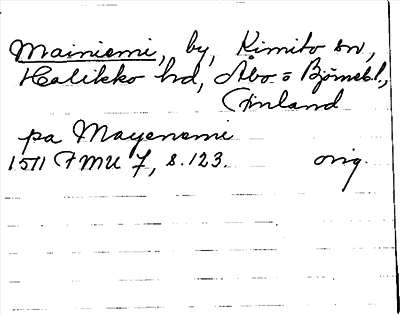 Mainiemi, by, Kimito sn,
Halikko hd, Åbo o Björneb.l.,
Finland
pa Mayenemi
1511 FMU 7, s. 123. orig.